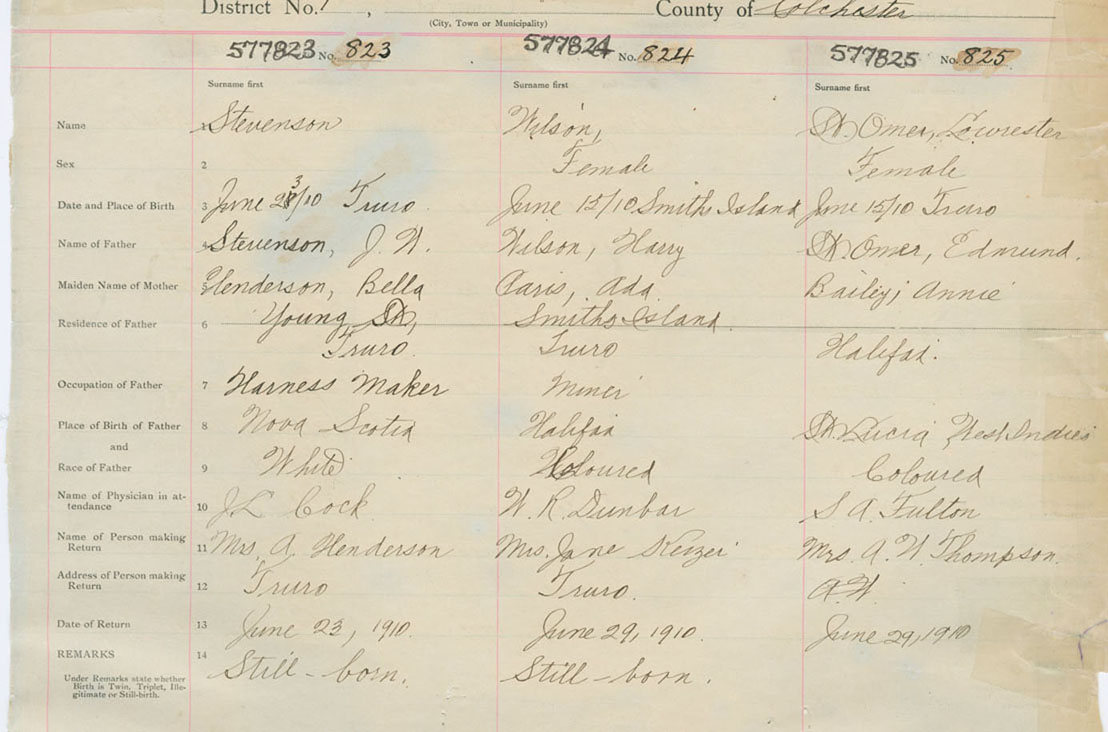 District No. 7, County of Colchester
(City, Town or Municipality)
577823 No. 823 577824 No. 824 577825 No. 825
Surname first Surname first Surname first
Name 1 Stevenson Wilson, St. Omer, Lowrester
Sex 2 Female Female
Date and Place of Birth 3 June 23/10 Truro June 15/10 Smiths Island June 15/10 Truro
Name of Father 4 Stevenson, J. W. Wilson, Harry St. Omer, Edmund.
Maiden Name of Mother 5 Henderson, Bella Paris, Ada. Bailey, Annie
Residence of Father 6 Young St, Smiths Island.
Truro Truro Halifax.
Occupation of Father 7 Harness Maker Miner
Place of Birth of Father 8 Nova Scotia Halifax St. Lucia West Indies
and
Race of Father 9 White Coloured Coloured
Name of Physician in at-
tendance 10 J L Cock W. R. Dunbar S. A. Fulton
Name of Person making
Return 11 Mrs. A. Henderson Mrs. Jane Keizer Mrs. A. W. Thompson.
Address of Person making
Return 12 Truro Truro. A. W.
Date of Return 13 June 23, 1910. June 29, 1910. June 29, 1910
REMARKS 14 Still-born. Still-born.
Under Remarks state whether
Birth is Twin, Triplet, Ille-
gitimate or Still-birth.